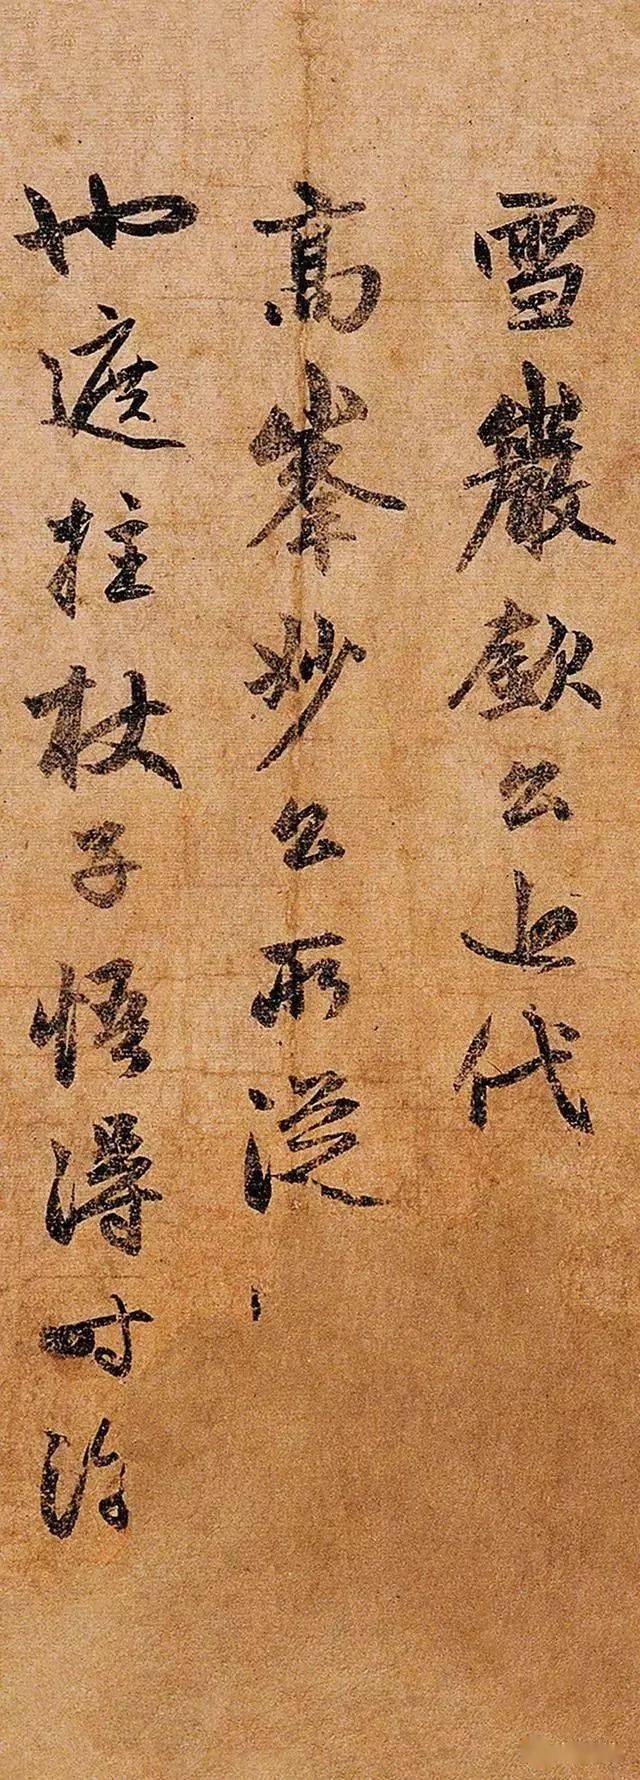 雪巖欽公代
高峯妙公所從
也遮拄杖子悟得時